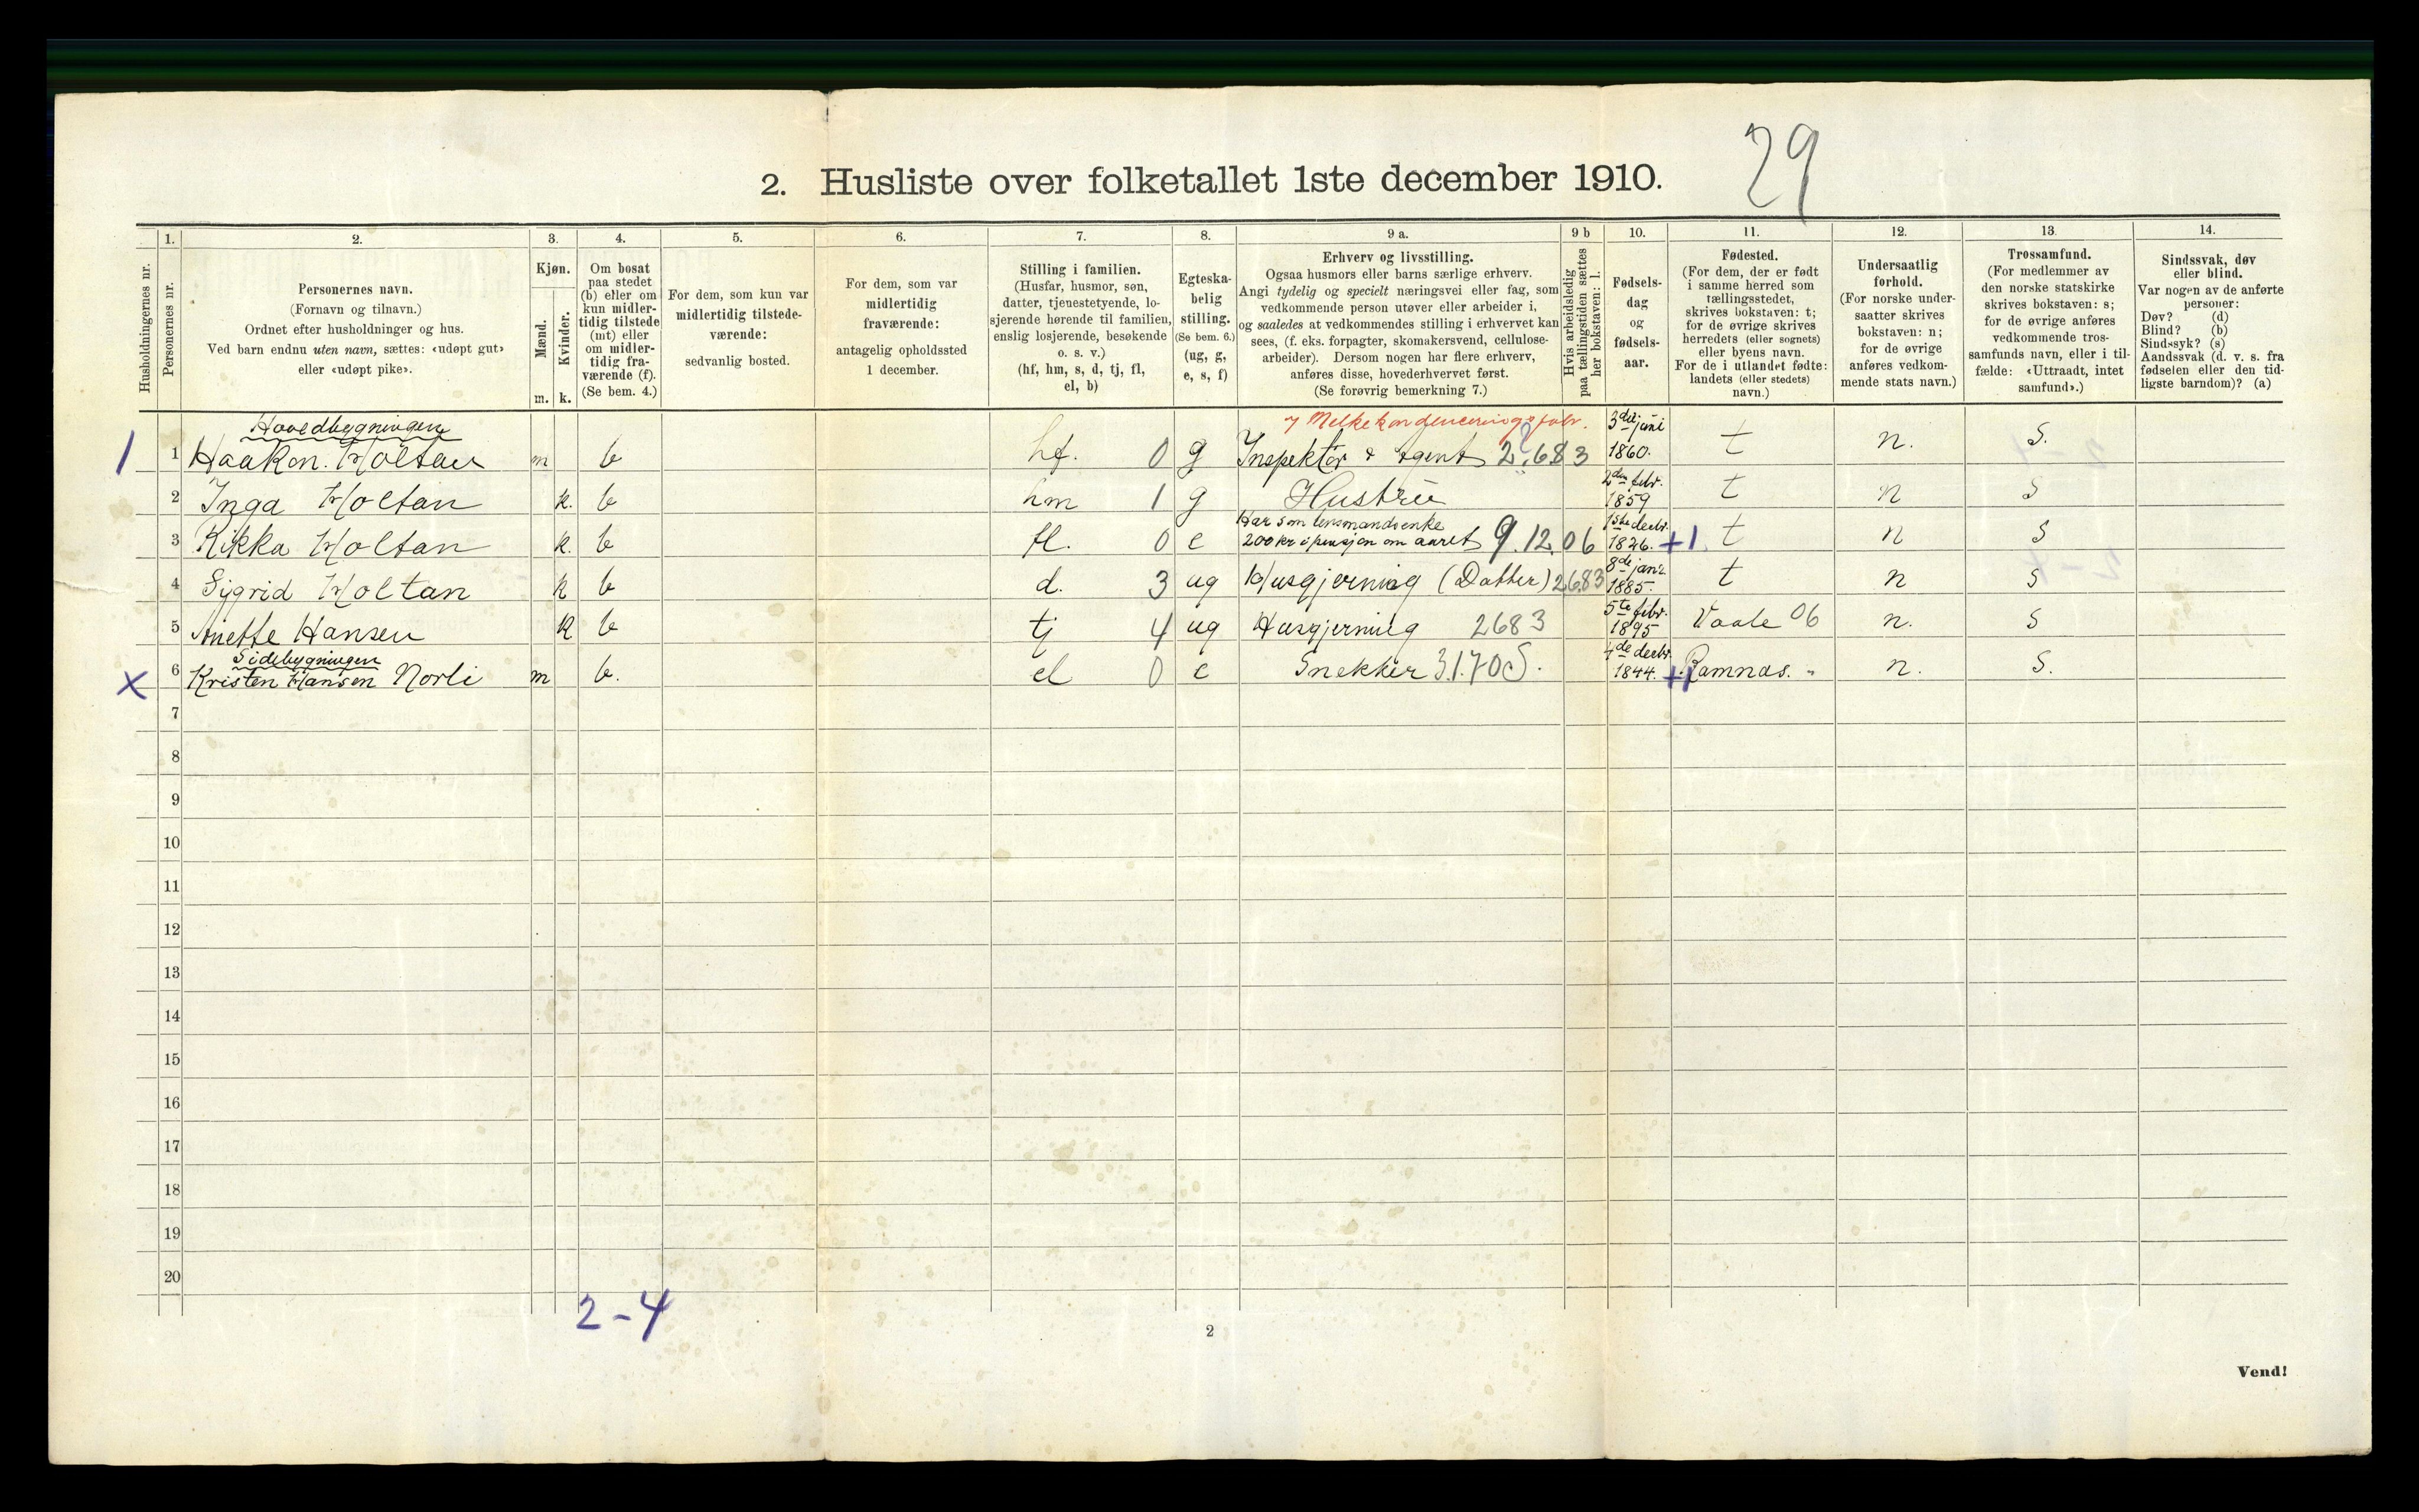 29
2. Husliste over folketallet 1ste december 1910.
Husholdningernes nr.
1. Personernes nr.
2. Personernes navn.
(Fornavn og tilnavn.)
Ordnet efter husholdninger og hus.
Ved barn endnu uten navn, sættes: «udøpt gut»
eller «udøpt pike».
3. Kjøn.
Mænd. m.
Kvinder. k.
4. Om bosat
paa stedet
(b) eller om
kun midler-
tidig tilstede
(mt) eller
om midler-
tidig fra-
værende (f).
(Se bem. 4.)
5. For dem, som kun var
midlertidig tilstede-
værende:
sedvanlig bosted.
6. For dem, som var
midlertidig
fraværende:
antagelig opholdssted
1 december.
7. Stilling i familien.
(Husfar, husmor, søn,
datter, tjenestetyende, lo-
sjerende hørende til familien,
enslig losjerende, besøkende
o. s. v.)
(hf, hm, s, d, tj, fl,
el, b)
8. Egteska-
belig
stilling.
(Se bem. 6.)
(ug, g,
e, s, f)
9 a. Erhverv og livsstilling.
Ogsaa husmors eller barns særlige erhverv.
Angi tydelig og specielt næringsvei eller fag, som
vedkommende person utøver eller arbeider i,
og saaledes at vedkommendes stilling i erhvervet kan
sees, (f. eks. forpagter, skomakersvend, cellulose-
arbeider). Dersom nogen har flere erhverv,
anføres disse, hovederhvervet først.
(Se forøvrig bemerkning 7.)
9 b Hvis arbeidsledig
paa tællingstiden sættes
her bokstaven: l.
10. Fødsels-
dag
og
fødsels-
aar.
11. Fødested.
(For dem, der er født
i samme herred som
tællingsstedet,
skrives bokstaven: t;
for de øvrige skrives
herredets (eller sognets)
eller byens navn.
For de i utlandet fødte:
landets (eller stedets)
navn.)
12. Undersaatlig
forhold.
(For norske under-
saatter skrives
bokstaven: n;
for de øvrige
anføres vedkom-
mende stats navn.)
13. Trossamfund.
(For medlemmer av
den norske statskirke
skrives bokstaven: s;
for de øvrige anføres
vedkommende tros-
samfunds navn, eller i til-
fælde: «Uttraadt, intet
samfund».)
14. Sindssvak, døv
eller blind.
Var nogen av de anførte
personer:
Døv? (d)
Blind? (b)
Sindssyk? (s)
Aandssvak (d. v. s. fra
fødselen eller den tid-
ligste barndom)? (a)
Hovedbygningen
1 1 Haakon. Holtan m b hf. 0 g Inspektør & Agent 2.683 3die juni 1860. t n. S.
2 Inga Holtan k. b hm 1 g Hustru 2den febr. 1859 t n S
3 Rikka Holtan k. b fl. 0 e Har som lensmandsenke 200 kr i pensjon om aaret 9.12.06 1ste decbr. 1826. +1. t n S
4 Sigrid Holtan k b d. 3 ug Husgjerning (Datter) 2683 8de janr. 1885. t n S
5 Anette Hansen k b tj 4 ug Husgjerning 2683 5te febr. 1895 Vaale 06 n. S
Sidebygningen
x 6 Kristen Hansen Norli m b. el 0 e Snekker 3.1.70 S. 4de decbr. 1844. +1 Ramnas. n. S.
7
8
9
10
11
12
13
14
15
16
17
18
19
20
2-4
2
Vend!